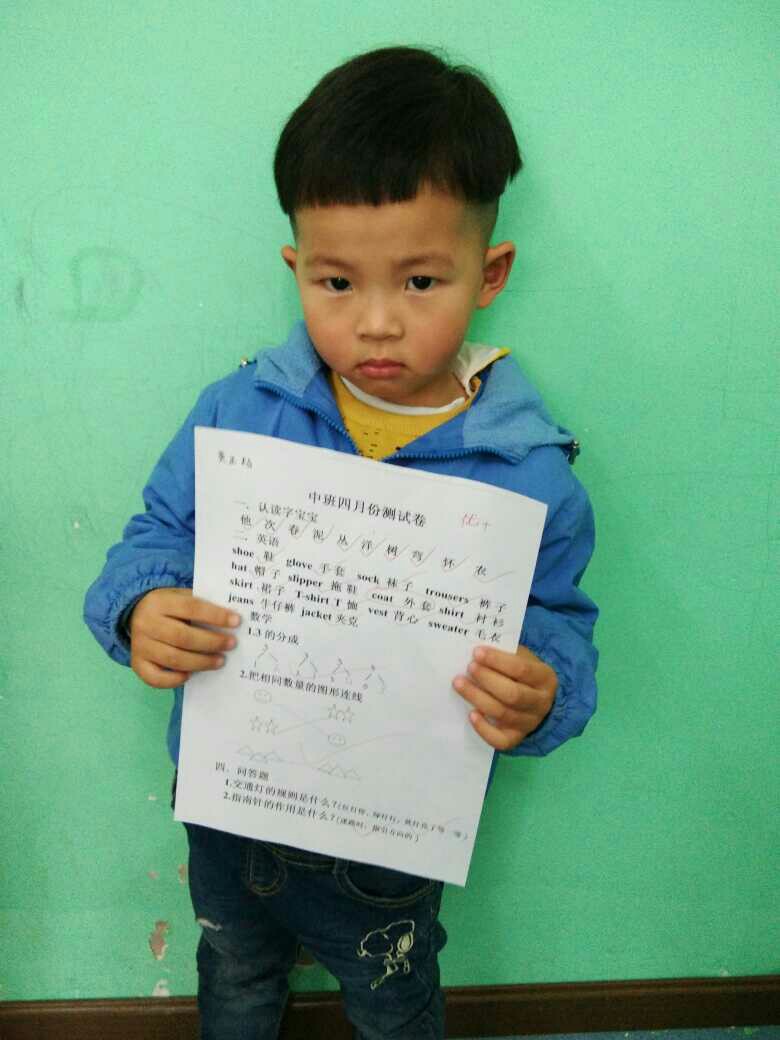 中班四月份测试卷
优+
一、认读字宝宝
他 次 春 泥 丛 洋 树 弯 怀 衣
二、英语
shoe 鞋 glove 手套 sock 袜子 trousers 裤子
hat 帽子 slipper 拖鞋 coat 外套 shirt 衬衫
skirt 裙子 T-shirt T恤 vest 背心 sweater 毛衣
jeans 牛仔裤 jacket 夹克
数学
1.3 的分成
2.把相同数量的图形连线
四、问答题
1.交通灯的规则是什么?(红灯停,绿灯行,黄灯亮了等一等)
2.指南针的作用是什么?(迷路时,指引方向的)